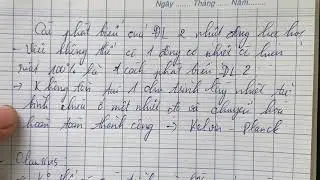 Ngày ...... Tháng ...... Năm......
Các phát biểu của ĐL 2 nhiệt động lực học
- Việc không thể có 1 động cơ nhiệt có hiệu
suất 100% là 1 cách phát biểu ĐL 2
→ Không tồn tại 1 chu trình lấy nhiệt từ
bình chứa ở một nhiệt độ và chuyển hóa
hoàn toàn thành công → Kelvin - Planck
- Clausius: